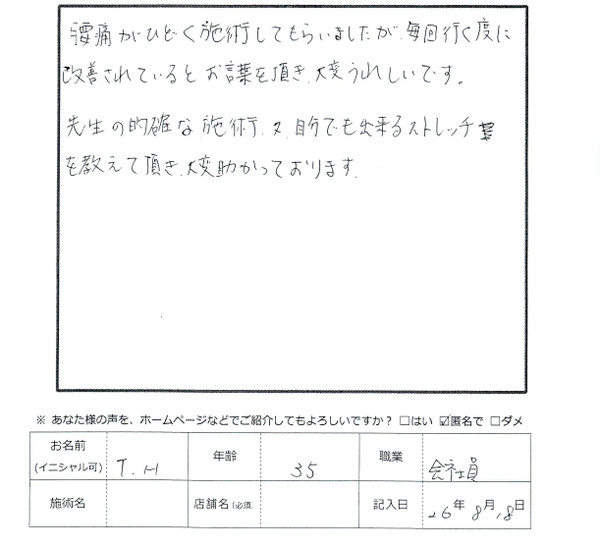 腰痛がひどく施術してもらいましたが、毎回行く度に
改善されているとお言葉を頂き、大変うれしいです。
先生の的確な施術、又、自分でも出来るストレッチ
を教えて頂き、大変助かっております。
※ あなた様の声を、ホームページなどでご紹介してもよろしいですか？ □はい ☑匿名で □ダメ
お名前 (イニシャル可) T.H 年齢 35 職業 会社員
施術名 店舗名 (必須) 記入日 26年 8月 18日